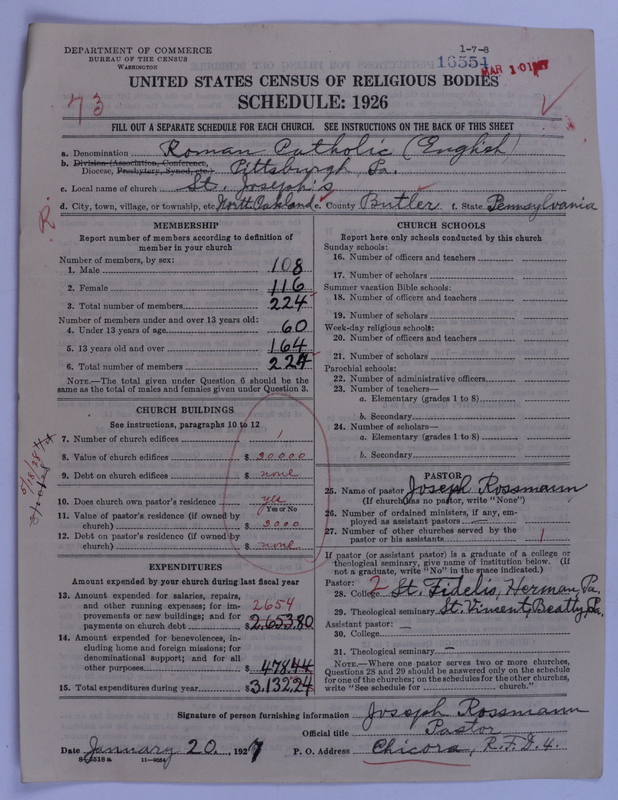 DEPARTMENT OF COMMERCE
BUREAU OF THE CENSUS
WASHINGTON
1-7-8
16554
MAR 10 1927
UNITED STATES CENSUS OF RELIGIOUS BODIES
SCHEDULE: 1926
73
FILL OUT A SEPARATE SCHEDULE FOR EACH CHURCH. SEE INSTRUCTIONS ON THE BACK OF THIS SHEET
a. Denomination Roman Catholic (English)
b. Division (Association, Conference,
Diocese, Presbytery, Synod, etc.) Pittsburgh, Pa.
c. Local name of church St. Joseph's
d. City, town, village, or township, etc. North Oakland e. County Butler f. State Pennsylvania
R
MEMBERSHIP
Report number of members according to definition of
member in your church
Number of members, by sex:
1. Male 108
2. Female 116
3. Total number of members 224
Number of members under and over 13 years old:
4. Under 13 years of age 60
5. 13 years old and over 164
6. Total number of members 224
NOTE.—The total given under Question 6 should be the
same as the total of males and females given under Question 3.
CHURCH BUILDINGS
See instructions, paragraphs 10 to 12
7. Number of church edifices 1
8. Value of church edifices $ 20000
9. Debt on church edifices $ none
10. Does church own pastor's residence yes
Yes or No
11. Value of pastor's residence (if owned by
church) $ 3000
12. Debt on pastor's residence (if owned by
church) $ none
5/18/28
EXPENDITURES
Amount expended by your church during last fiscal year
13. Amount expended for salaries, repairs,
and other running expenses; for im-
provements or new buildings; and for
payments on church debt $ 2,653.80
2654
14. Amount expended for benevolences, in-
cluding home and foreign missions; for
denominational support; and for all
other purposes $ 478.44
15. Total expenditures during year $ 3,132.24
CHURCH SCHOOLS
Report here only schools conducted by this church
Sunday schools:
16. Number of officers and teachers
17. Number of scholars
Summer vacation Bible schools:
18. Number of officers and teachers
19. Number of scholars
Week-day religious schools:
20. Number of officers and teachers
21. Number of scholars
Parochial schools:
22. Number of administrative officers
23. Number of teachers—
a. Elementary (grades 1 to 8)
b. Secondary
24. Number of scholars—
a. Elementary (grades 1 to 8)
b. Secondary
PASTOR
25. Name of pastor Joseph Rossmann
(If church has no pastor, write "None")
26. Number of ordained ministers, if any, em-
ployed as assistant pastors —
27. Number of other churches served by the
pastor or his assistants 1
If pastor (or assistant pastor) is a graduate of a college or
theological seminary, give name of institution below. (If
not a graduate, write "No" in the space indicated.)
Pastor: 2
28. College St. Fidelis, Herman, Pa.
29. Theological seminary St. Vinsent, Beatty, Pa.
Assistant pastor: —
30. College
31. Theological seminary —
NOTE.—Where one pastor serves two or more churches,
Questions 28 and 29 should be answered only on the schedule
for one of the churches; on the schedules for the other churches,
write "See schedule for church."
Signature of person furnishing information Joseph Rossmann
Official title Pastor
Date January 20, 1927 P. O. Address Chicora, R.F.D. 4.
8-5518a 11-9054